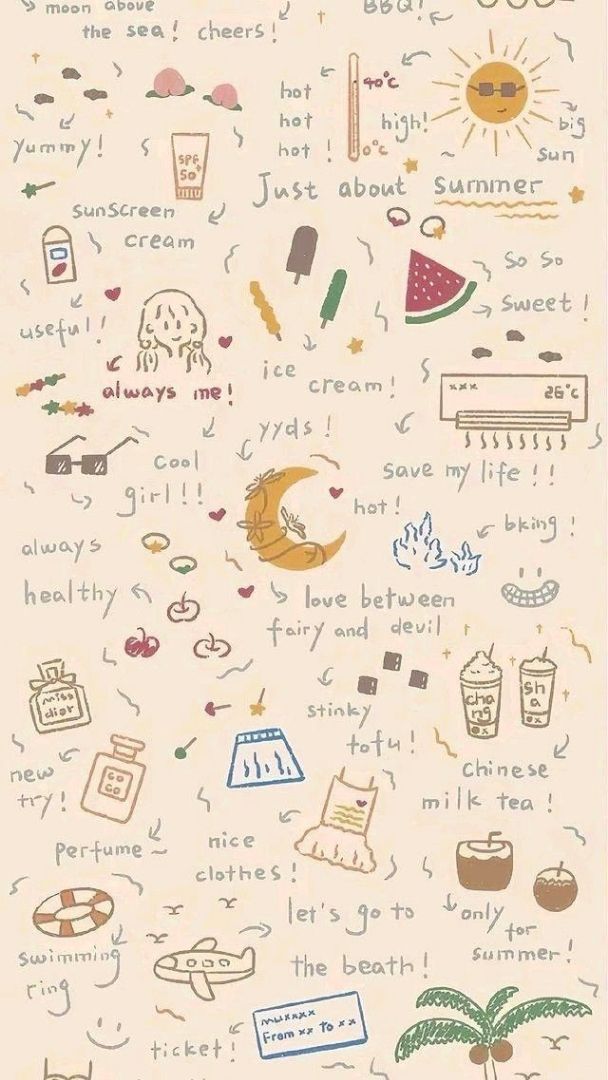 moon above
the sea! cheers!
BBQ!
hot
hot
hot!
40°c
0°c
high!
big
sun
yummy!
SPF
50+
Just about summer
sunscreen
cream
so so
sweet!
useful!
always me!
ice
cream!
xxx
26°c
yyds!
cool
girl!!
save my life!!
hot!
bking!
always
healthy
love between
fairy and devil
miss
dior
stinky
tofu!
cha
ng
sh
a
new
try!
chinese
milk tea!
perfume~
nice
clothes!
let's go to
the beath!
only
for
summer!
swimming
ring
From xx to xx
ticket!